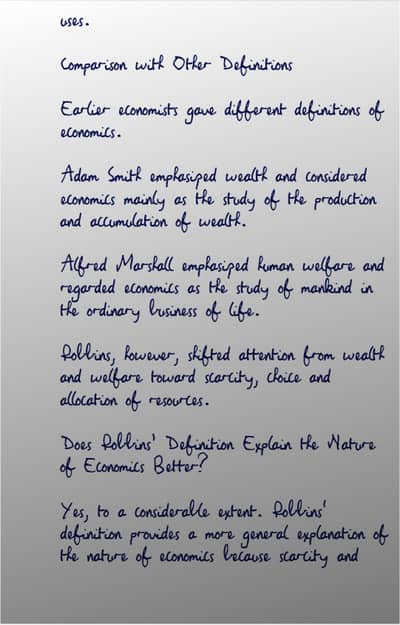 uses.
Comparison with Other Definitions
Earlier economists gave different definitions of
economics.
Adam Smith emphasized wealth and considered
economics mainly as the study of the production
and accumulation of wealth.
Alfred Marshall emphasized human welfare and
regarded economics as the study of mankind in
the ordinary business of life.
Robbins, however, shifted attention from wealth
and welfare toward scarcity, choice and
allocation of resources.
Does Robbins' Definition Explain the Nature
of Economics Better?
Yes, to a considerable extent. Robbins'
definition provides a more general explanation of
the nature of economics because scarcity and